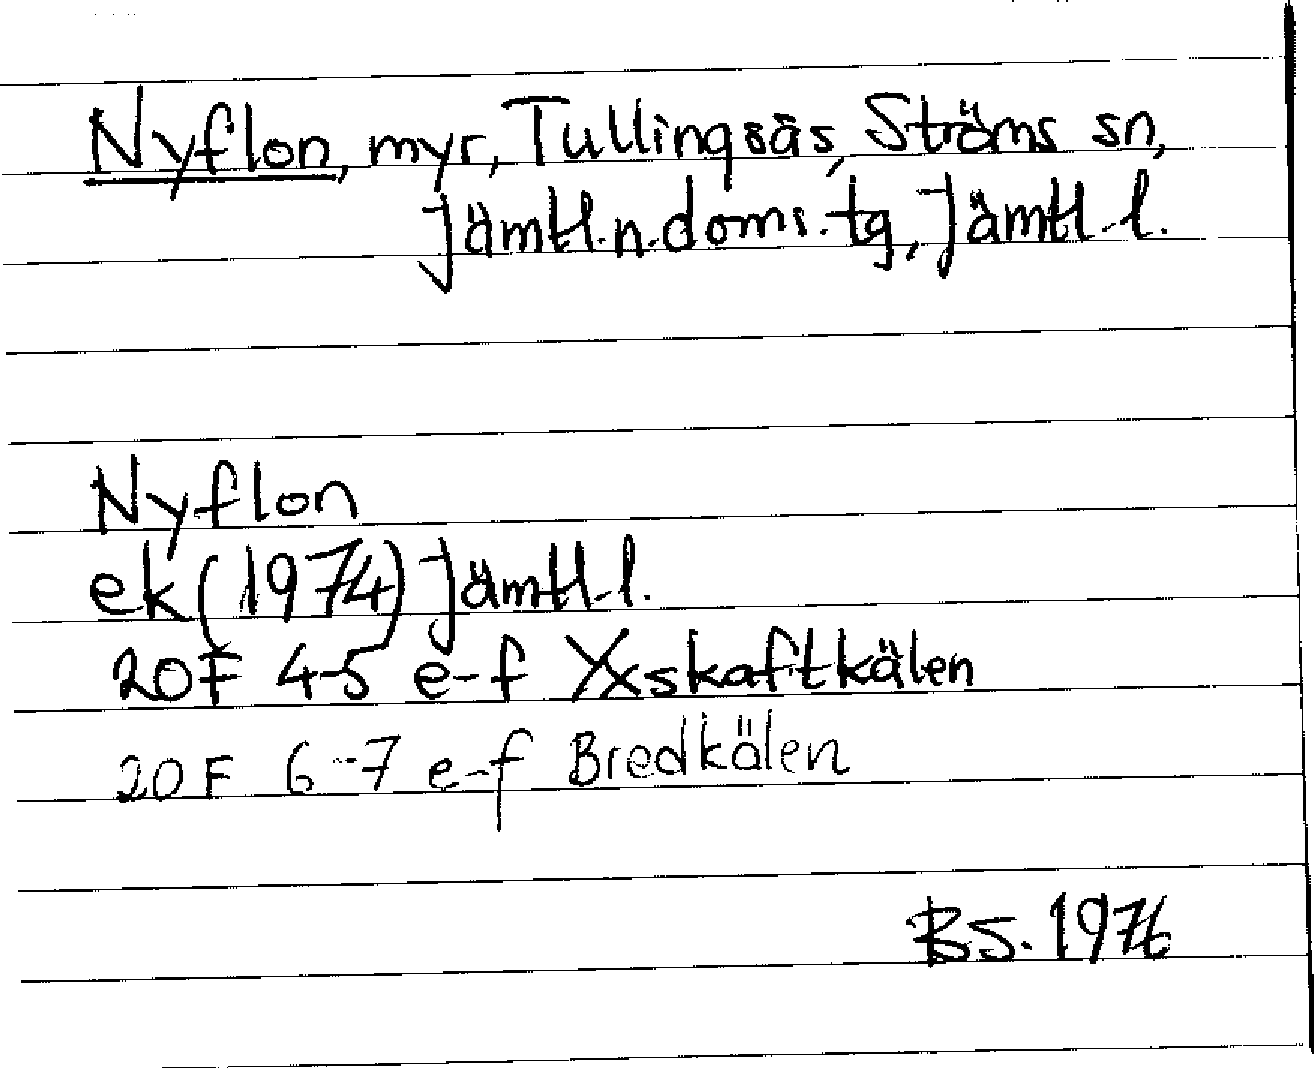 Nyflon, myr, Tullingsås, Ströms sn,
Jämtl.n.doms.tg, Jämtl.l.
Nyflon
ek (1974) Jämtl.l.
20F 4-5 e-f Yxskaftkälen
20F 6-7 e-f Bredkälen
BS. 1976